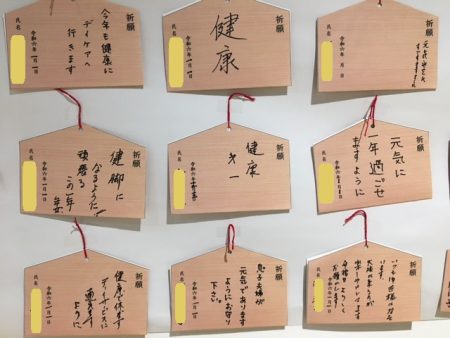 祈願
今年も健康に
デイケアへ
行きます
令和六年一月一日
氏名
祈願
健康
令和六年一月一日
氏名
祈願
令和六年 月 日
氏名
祈願
健脚に
なるように
頑張る
この一年
令和六年一月一日
氏名
祈願
健康
第一
令和六年
氏名
祈願
元気に
一年過ごせ
ますように
令和六年
氏名
祈願
健康で休まず
デイサービスに
通えます
ように
令和六年一月一日
氏名
祈願
息子夫婦が
元気であります
ようにお守り
下さい。
令和六年一月一日
氏名
祈願
令和六年一月一日
氏名